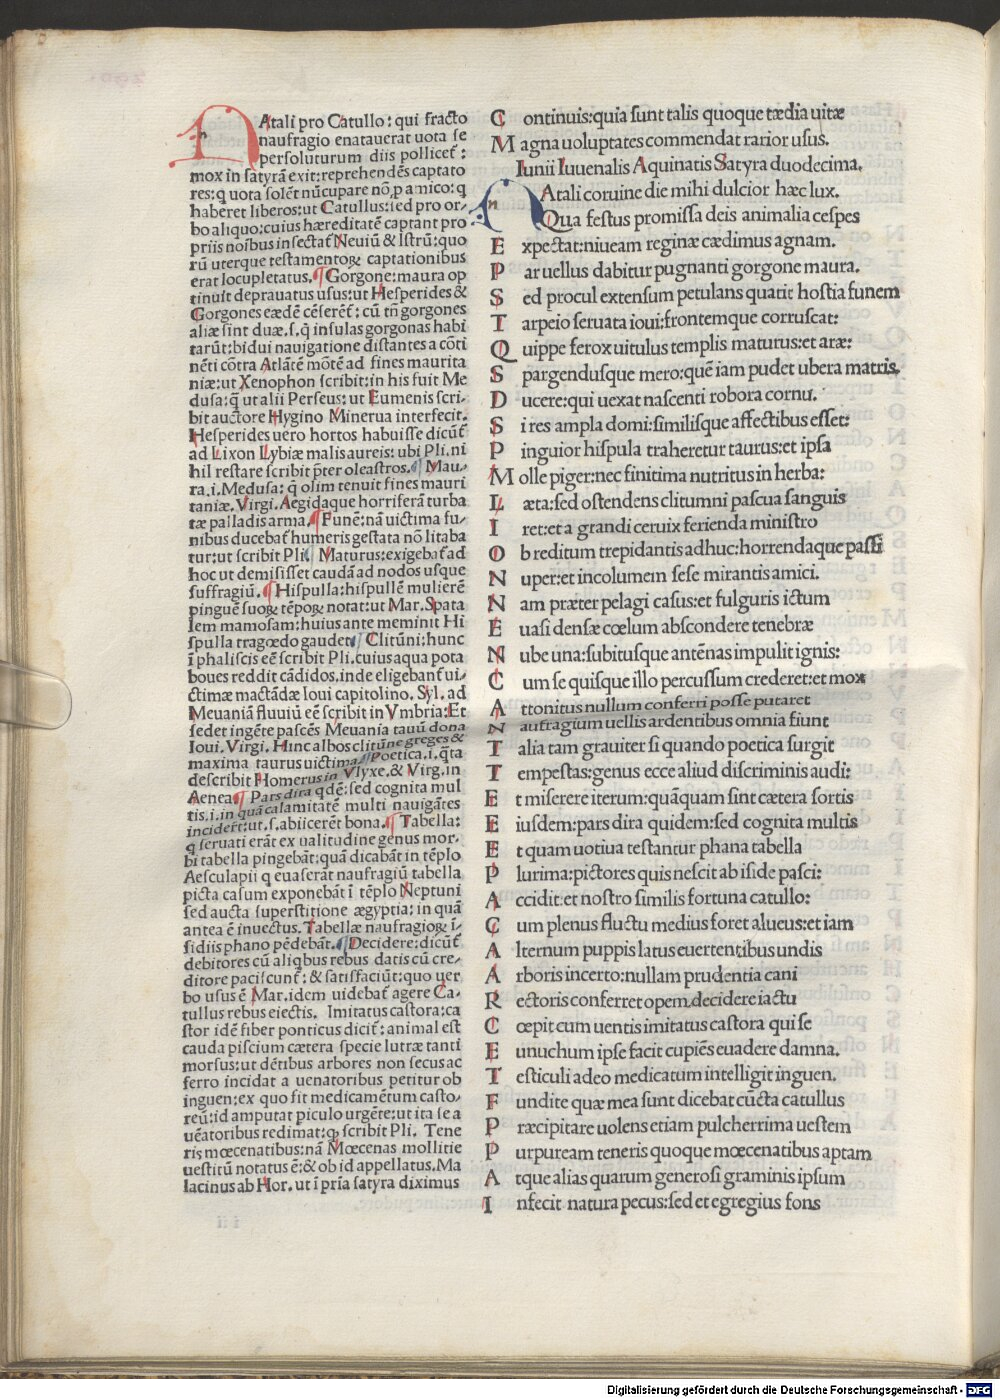 NAtali pro Catullo: qui fracto
naufragio enatauerat uota se
persoluturum diis pollicet̄:
mox in satyrā exit: reprehendēs captato
res: q uota solēt nūcupare nō p amico: q
haberet liberos: ut Catullus: sed pro or-
bo aliquo: cuius hæreditatē captant pro
priis noībus insectat̄ Neuiū & Istrū: quo
rū uterque testamentoꝝ captationibus
erat locupletatus. ¶ Gorgone: maura op
tinuit deprauatus usus: ut Hesperides &
Gorgones eædē cēserēt̄: cū tn̄ gorgones
aliæ sint duæ. s. q̄ insulas gorgonas habi
tarūt: bidui nauigatione distantes a cōti
nēti cōtra Atlātē mōtē ad fines maurita
niæ: ut Xenophon scribit: in his fuit Me
dusa: q̄ ut alii Perseus: ut Eumenis scri-
bit auctore Hygino Minerua interfecit.
Hesperides uero hortos habuisse dicūt̄
ad Lixon Lybiæ malis aureis: ubi Pli. ni
hil restare scribit p̄ter oleastros. ¶ Mau-
ra. i. Medusa: q̄ olim tenuit fines mauri
taniæ. Virgi. Aegidaque horriferā turba
tæ palladis arma. ¶ Funē: nā uictima fu-
nibus ducebat̄ humeris gestata nō litaba
tur: ut scribit Pli. ¶ Maturus: exigebat̄ ad
hoc ut demisisset caudā ad nodos usque
suffragiū. ¶ Hispulla: hispullē mulierē
pinguē suoꝝ tēpoꝝ notat: ut Mar. Spata
lem mamosam: huius ante meminit Hi
spulla tragœdo gaudet. ¶ Clitūni: hunc
ī phaliscis eē scribit Pli. cuius aqua pota
boues reddit cādidos. inde eligebant̄ ui-
ctimæ mactādæ Ioui capitolino. Syl. ad
Meuaniā fluuiū eē scribit in Vmbria: Et
sedet ingēte pascēs Meuania tauū dona
Ioui. Virgi. Hinc albos clitūne greges &
maxima taurus uictima. ¶ Poetica. i. q̄ta
describit Homerus in Vlyxe. & Virg. in
Aenea. ¶ Pars dira qdē: sed cognita mul
tis. i. in quā calamitatē multi nauigātes
inciderūt: ut. s. abiicerēt bona. ¶ Tabella:
q seruati erāt ex ualitudine genus mor-
bi tabella pingebāt: quā dicabāt in tēplo
Aesculapii q euaserat naufragiū tabella
picta casum exponebāt ī tēplo Neptuni
sed aucta superstitione ægyptia: in quā
antea ē inuectus. Tabellæ naufragioꝝ i-
sidiis phano pēdebāt. ¶ Decidere: dicūt̄
debitores cū aliqbus rebus datis cū cre-
ditore paciscunt̄: & satisfaciūt: quo uer
bo usus ē Mar. idem uidebat̄ agere Ca-
tullus rebus eiectis. Imitatus castora: ca
stor idē fiber ponticus dicit̄: animal est
cauda piscium cætera specie lutræ tanti
morsus: ut dētibus arbores non secus ac
ferro incidat a uenatoribus petitur ob
inguen: ex quo fit medicamētum casto-
reū: id amputat piculo urgēte: ut ita se a
uēatoribus redimat: qꝫ scribit Pli. Tene
ris mœcenatibus: nā Mœcenas mollitie
uestitū notatus ē: & ob id appellatus. Ma
lacinus ab Hor. ut ī pria satyra diximus
Continuis: quia sunt talis quoque tædia uitæ
Magna uoluptates commendat rarior usus.
Iunii Iuuenalis Aquinatis Satyra duodecima.
NAtali coruine die mihi dulcior hæc lux.
Qua festus promissa deis animalia cespes
Expectat: niueam reginæ cædimus agnam.
Par uellus dabitur pugnanti gorgone maura.
Sed procul extensum petulans quatit hostia funem
Tarpeio seruata ioui: frontemque corruscat:
Quippe ferox uitulus templis maturus: et aræ:
Spargendusque mero: quē iam pudet ubera matris.
Ducere: qui uexat nascenti robora cornu.
Si res ampla domi: similisque affectibus esset:
Pinguior hispula traheretur taurus: et ipsa
Molle piger: nec finitima nutritus in herba:
Læta: sed ostendens clitumni pascua sanguis
Iret: et a grandi ceruix ferienda ministro
Ob reditum trepidantis adhuc: horrendaque passi
Nuper: et incolumem sese mirantis amici.
Nam præter pelagi casus: et fulguris ictum
Euasi densæ cœlum abscondere tenebræ
Nube una: subitusque antēnas impulit ignis:
Cum se quisque illo percussum crederet: et mox
Attonitus nullum conferri posse putaret
Naufragium uellis ardentibus omnia fiunt
Talia tam grauiter si quando poetica surgit
Tempestas: genus ecce aliud discriminis audi:
Et miserere iterum: quāquam sint cætera sortis
Eiusdem: pars dira quidem: sed cognita multis
Et quam uotiua testantur phana tabella
Plurima: pictores quis nescit ab iside pasci:
Accidit: et nostro similis fortuna catullo:
Cum plenus fluctu medius foret alueus: et iam
Alternum puppis latus euertentibus undis
Arboris incerto: nullam prudentia cani
Rectoris conferret opem. decidere iactu
Cœpit cum uentis imitatus castora qui se
Eunuchum ipse facit cupiēs euadere damna.
Testiculi adeo medicatum intelligit inguen.
Fundite quæ mea sunt dicebat cūcta catullus
Præcipitare uolens etiam pulcherrima uestem
Purpuream teneris quoque mœcenatibus aptam
Atque alias quarum generosi graminis ipsum
Infecit natura pecus: sed et egregius fons
Digitalisierung gefördert durch die Deutsche Forschungsgemeinschaft - DFG